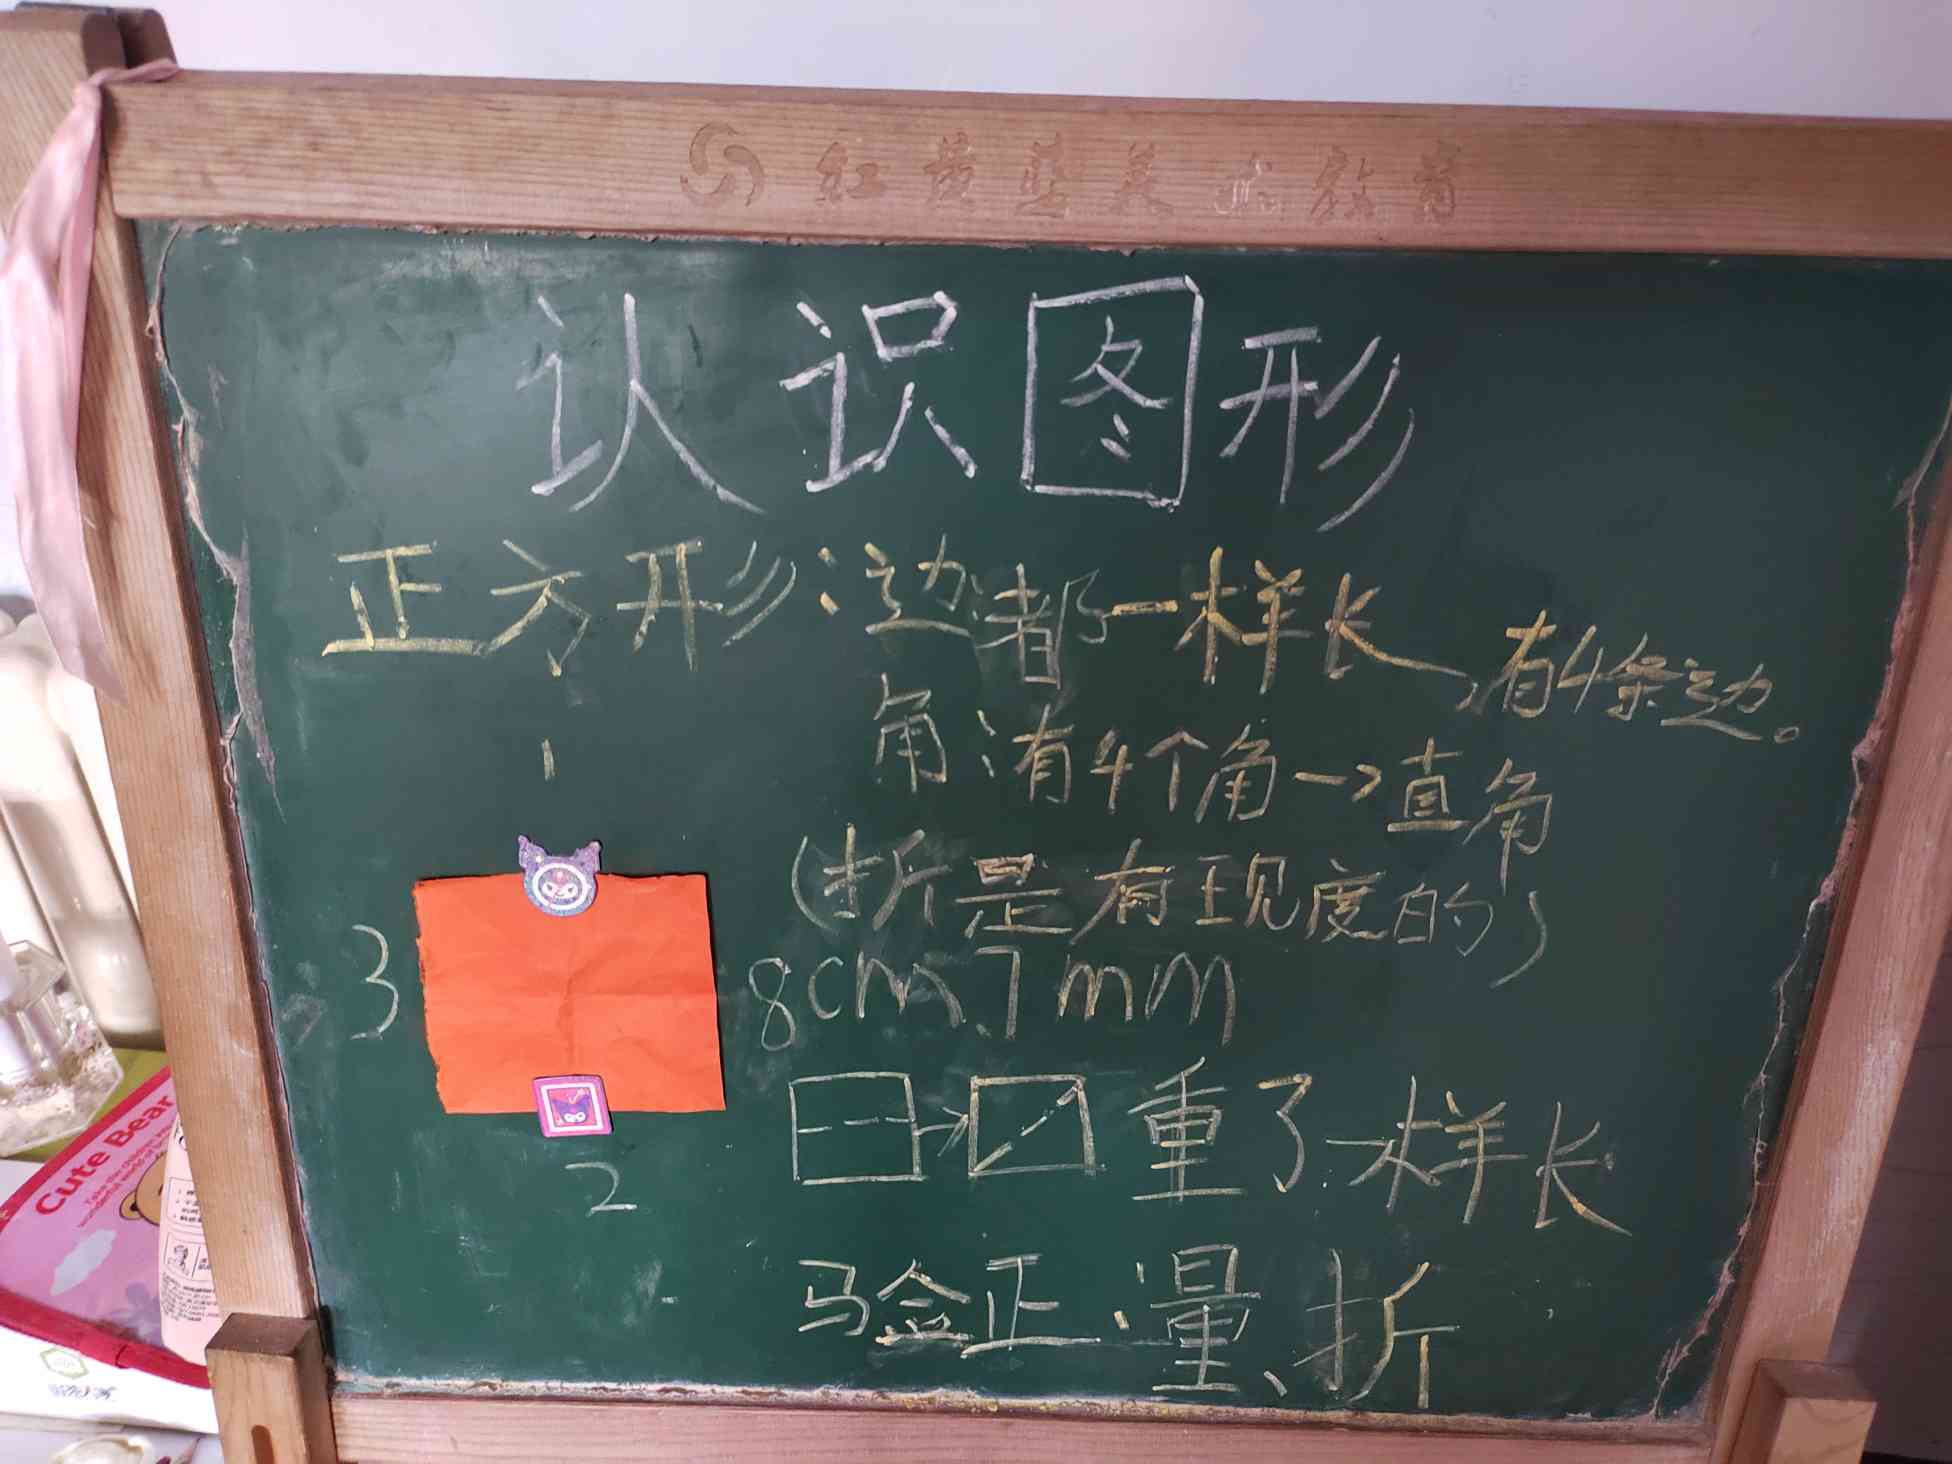 红黄蓝美术教育
认识图形
正方形:边都一样长,有4条边。
角:有4个角→直角
1
(折是有现度的)
3
8cm、7mm
重了一样长
2
验正:量、折
Cute Bear